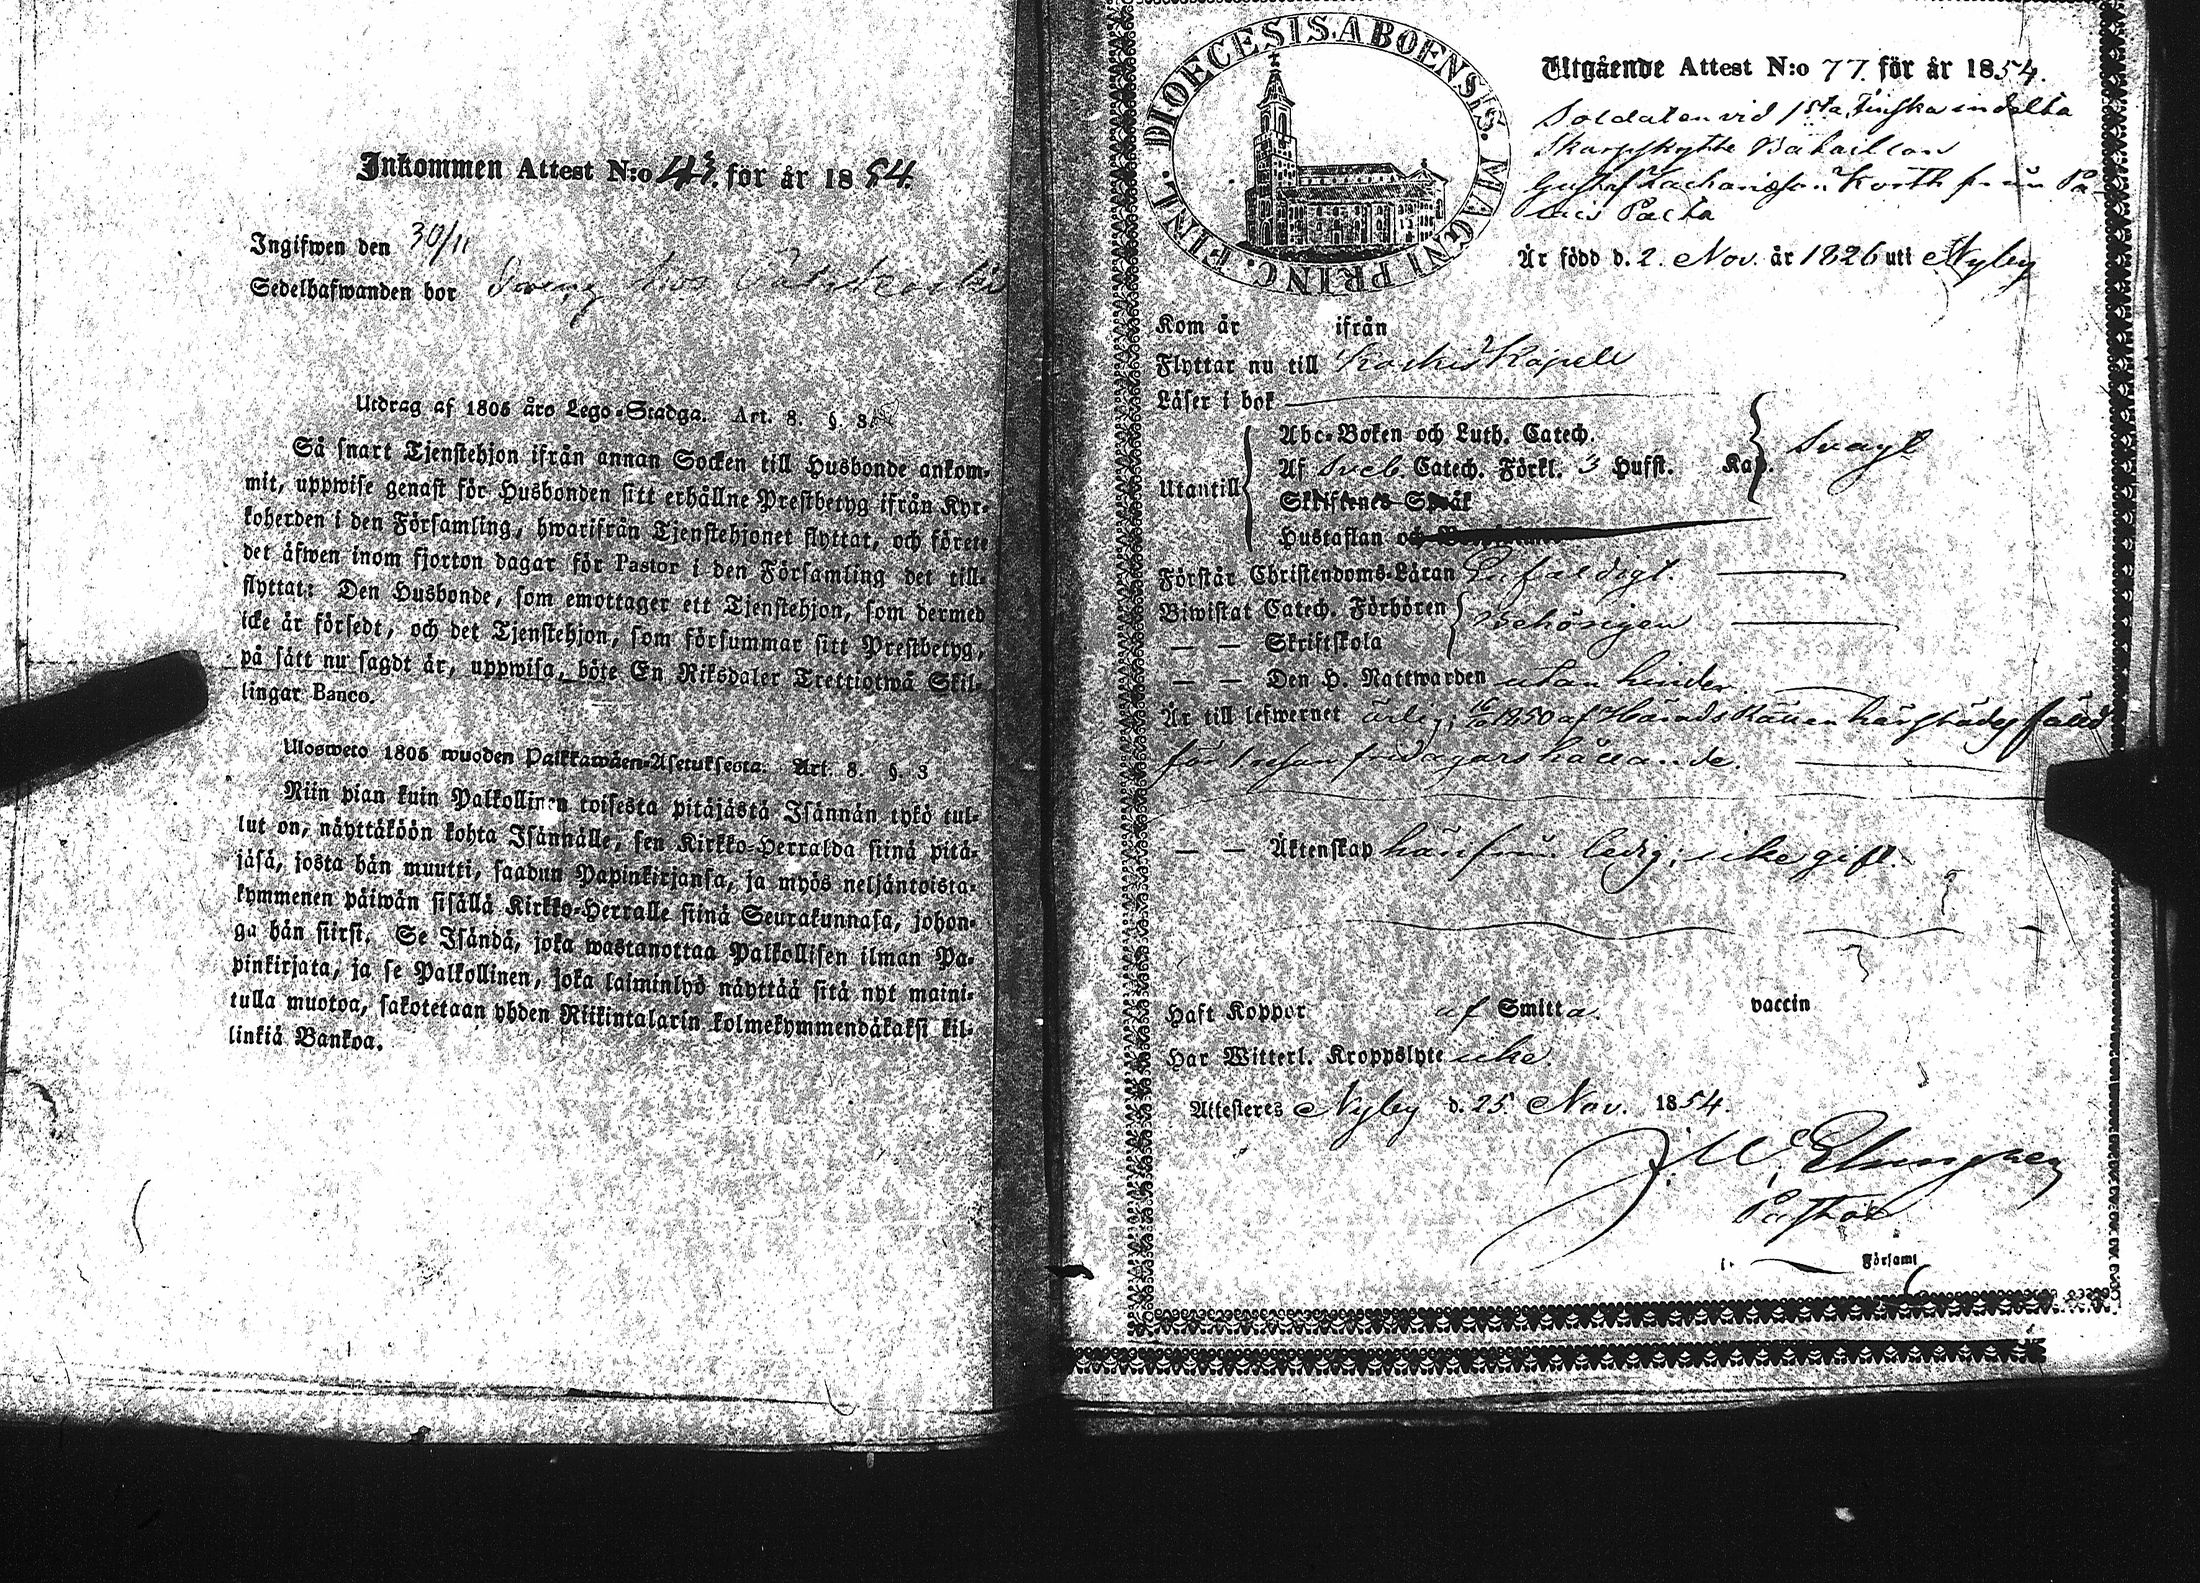 Inkommen Attest N:o 43. för år 1854.
Ingifwen den 30/11
Sedelhafwanden bor Dreng hos
Utdrag af 1805 års Lego-Stadga. Art. 8. §. 3.
Så snart Tjenstehjon ifrån annan Socken till Husbonde ankom-
mit, uppwise genast för Husbonden sitt erhållne Prestbetyg ifrån Kyr-
koherden i den Församling, hwarifrån Tjenstehjonet flyttat, och förete
det äfwen inom fjorton dagar för Pastor i den Församling det till-
flyttat: Den Husbonde, som emottager ett Tjenstehjon, som dermed
icke är försedt, och det Tjenstehjon, som försummar sitt Prestbetyg,
på sätt nu sagdt är, uppwisa, böte En Riksdaler Trettiotwå Skil-
lingar Banco.
Ulosweto 1805 wuoden Palkkawäen-Asetuksesta. Art. 8. §. 3
Niin pian kuin Palkollinen toisesta pitäjästä Isännän tykö tul-
lut on, näyttäköön kohta Isännälle, sen Kirkko-Herralda siinä pitä-
jäsä, josta hän muutti, saadun Papinkirjansa, ja myös neljäntoista-
kymmenen päiwän sisällä Kirkko-Herralle siinä Seurakunnasa, johon-
ga hän siirsi. Se Isändä, joka wastanottaa Palkollisen ilman Pa-
pinkirjata, ja se Palkollinen, joka laiminlyö näyttää sitä nyt maini-
tulla muotoa, sakotetaan yhden Riikintalarin kolmekymmendäkaksi kil-
linkiä Bankoa.
DIOECESIS. ABOENSIS. MAGNI PRINC. FINL.
Utgående Attest N:o 77. för år 1854.
Soldaten vid 1sta Finska indelta
Skarpskytte Bataillon
Gustaf Zachariasson Korth från På-
Är född d. 2. Nov. år 1826 uti Nyby
Kom år ifrån
Flyttar nu till Kapell
Läser i bok
Utantill
Abc-Boken och Luth. Catech.
Af Sveb. Catech. Förkl. 3 Hufst. Kap. Svagt
Skriftenes Språk
Hustaflan och
Förstår Christendoms-Läran Enfaldigt.
Biwistat Catech. Förhören Behörigen
— — Skriftskola
— — Den H. Nattwarden utan hinder.
Är till lefwernet ärlig; 1850 af Häradsrätten härstädes fälld
för
— — Äktenskap härifrån ledig; icke gift.
Haft Koppor af Smitta. vaccin
Har Witterl. Kroppslyte icke.
Attesteres Nyby d. 25 Nov. 1854.
J. W.
Pastor
i Församl